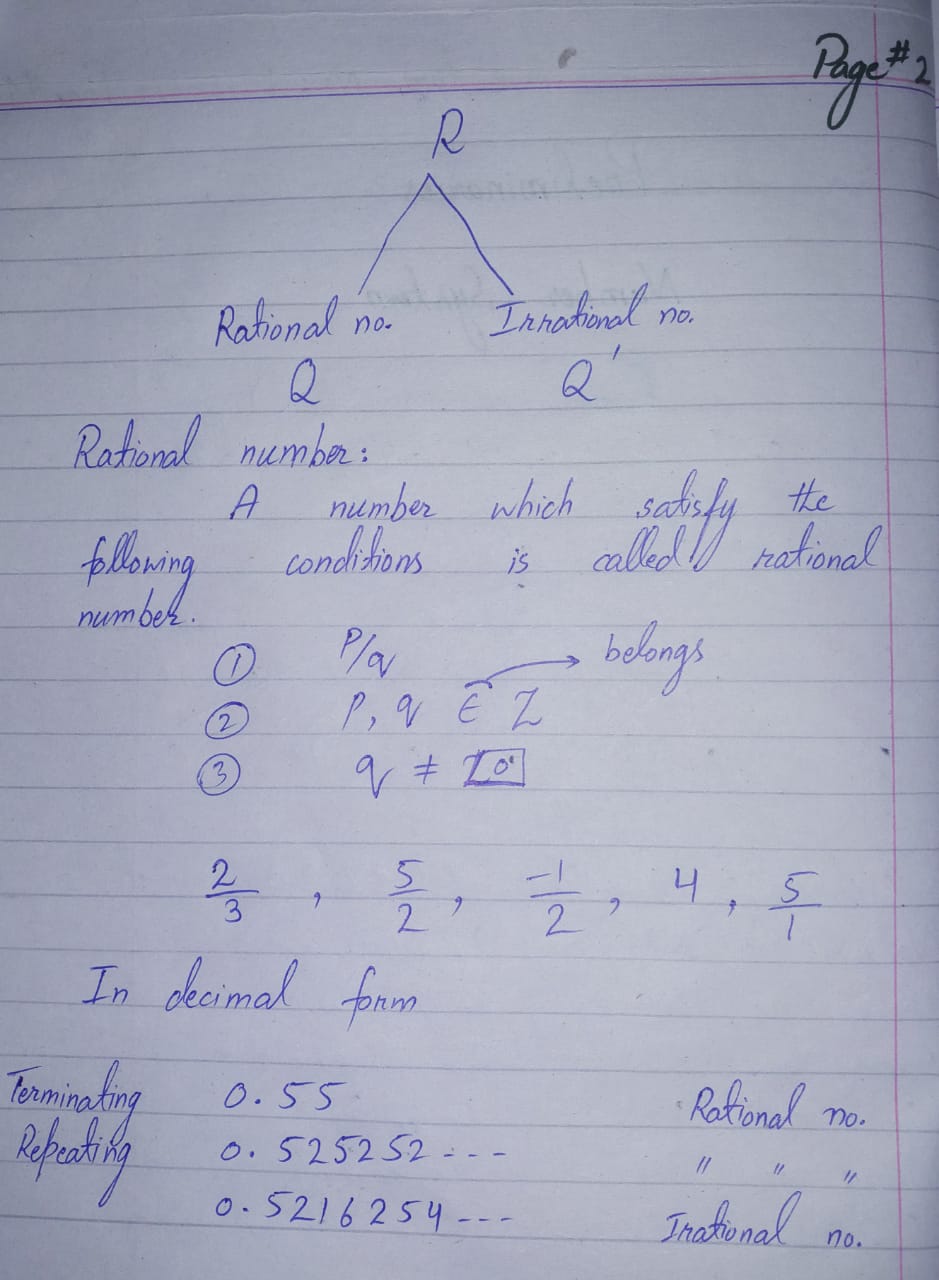 Page # 2
R
Rational no. Irrational no.
Q Q'
Rational number:
A number which satisfy the
following conditions is called rational
number.
① P/q → belongs
② P, q ∈ Z
③ q ≠ 0
2/3 , 5/2 , -1/2 , 4 , 5/1
In decimal form
Terminating 0.55 Rational no.
Repeating 0.525252--- " " "
0.5216254--- Irational no.